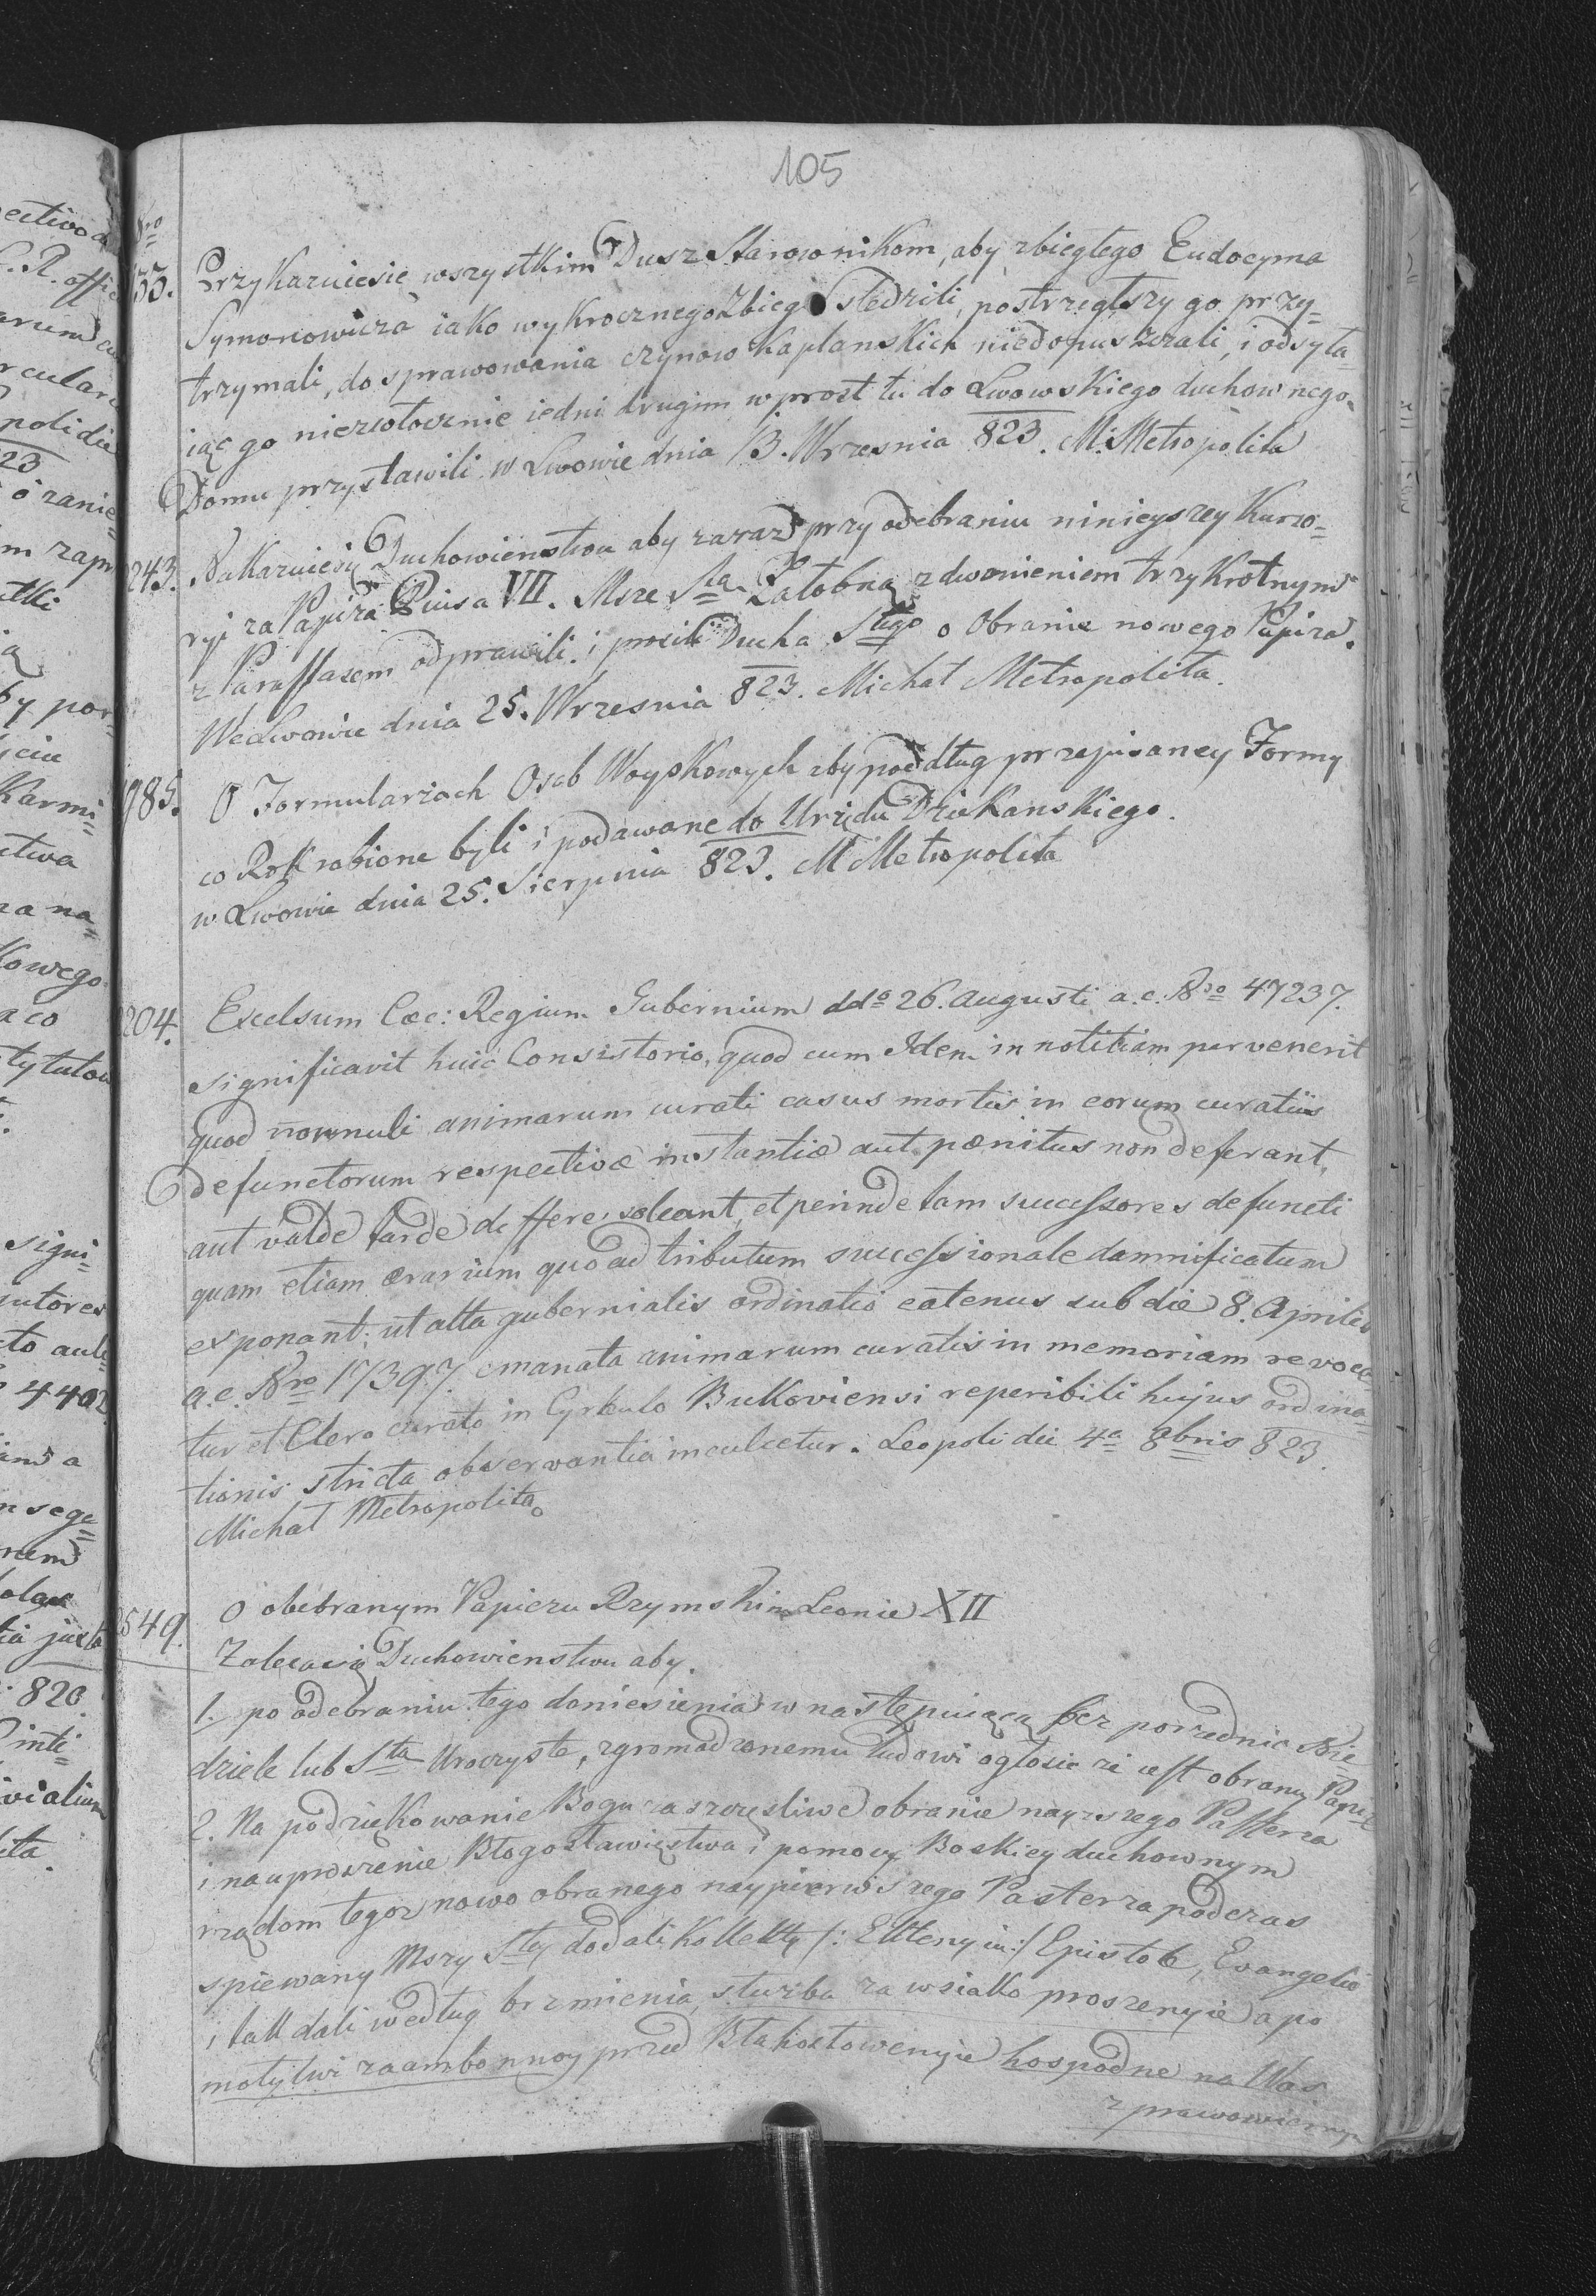 105
Nro
33. Przykazuiesię wszystkim Dusz Starownikom, aby zbiegłego Eudocyma
Symonowicza iako wykrocznego Zbiega sledzili, postrzegłszy go przy=
trzymali, do sprawowania czynow kapłanskich niedopuszczali, i odsyła
iąc go niezwłocznie iedni drugim wprost tu do Lwowskiego duchownego
Domu przystawili w Lwowie dnia 13. Wrzesnia 823. M. Metropolita
243. Nakazuiesię Duchowienstwu aby zaraz przy odebraniu ninieyszey Kurro=
ryi za Papiża Piusa VII. Msze Sta Załobną z dwonieniem trzykrotnym
z Parastasem odprawili i prosili Ducha Stego o Obranie nowego Papiża.
We Lwowie dnia 25. Wrzesnia 823. Michał Metropolita.
985. O Formularzach Osob Woyskowych aby podług przepisaney Formy
co Rok robione byli i podawane do Urzędu Dziekanskiego.
w Lwowie dnia 25. Sierpnia 823. M Metropolita
204. Excelsum Cae: Regium Gubernium ddo 26. Augusti a.c. Nro 47237.
significavit huic Consistorio, quod cum Idem in notitiam pervenerit
quod nonnuli animarum curati casus mortis in eorum curatiis
defunctorum respectivae instantiae aut paenitus non deferant,
aut valde tarde deffere soleant, et perinde tam successores defuncti
quam etiam aerarium quoad tributum successionale damnificatum
exponant; ut alta gubernialis ordinatio eatenus sub die 8. Aprilis
a.c. Nro 17397. emanata animarum curatis in memoriam revoce=
tur et Clero curato in Cyrkulo Bukoviensi reperibili hujus ordina=
tionis stricta observantia inculcetur. Leopoli die 4a 8bris 823.
Michał Metropolita
2549. O obebranym Papiezu Rzymskim Leonie XII
Zalecasię Duchowienstwu aby.
1. po odebraniu tego doniesienia w następuiącą bez porednio Nie=
dziele lub Sta Uroczyste, zgromadzonemu ludowi ogłosic ze iest obrany Papiez
2. Na podziękowanie Bogu za szczęsliwe obranie nayzszego Pasterza
i na uproszenie Błogosławięstwa i pomocy Boskiey duchownym
rządom tegoz nowo obranego naypierwiszego Pasterza podczas
spiewany Mszy Stey dodali Kollekty /: Ektenyiu :/ Epistole, Evangelio
i tak dali według brzmienia, służba za wsiako proszenyie a po
motyłwi zaambonnoy przed Błahosłowenyie hospodne na Was
z prawowiernym